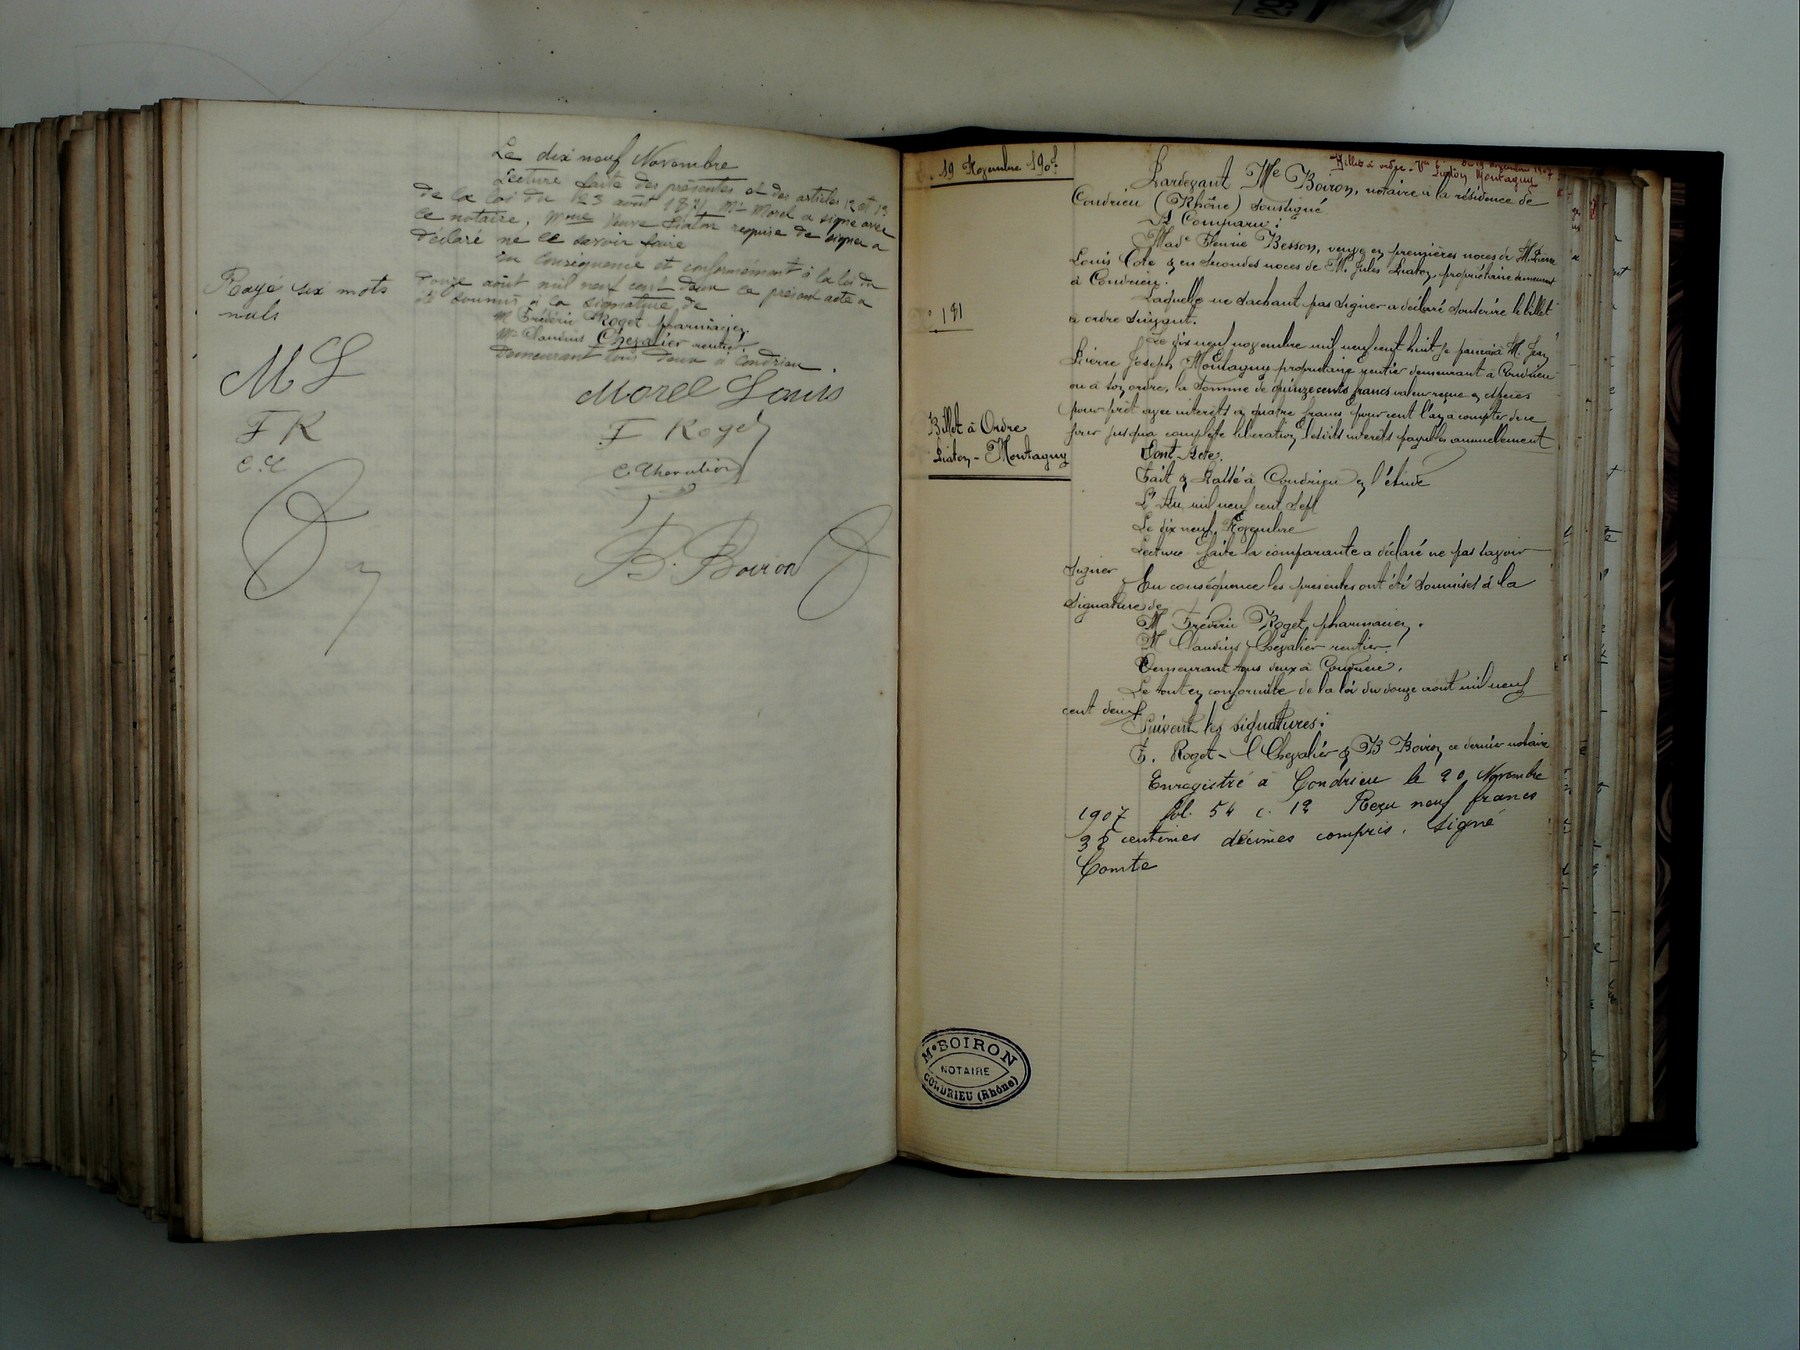 Le dix neuf Novembre
Lecture faite des présentes et des articles 12 et 13
de la loi du 23 août 1871 Mr Morel a signé avec
le notaire, Mme Veuve Liaton requise de signer a
déclaré ne le savoir faire
En conséquence et conformément à la loi du
douze août mil neuf cent deux ce présent acte a
été soumis à la signature de
M Frédéric Roget pharmacien
Mr Claudius Chevalier rentier
Demeurant tous deux à Condrieu.
Rayé six mots
nuls
M L
F R
C. C
Morel Louis
F Roget
C Chevalier
B. Boiron
19 Novembre 1907
191
Billet à Ordre
Liaton - Montagny
Billet à ordre - Vve Liaton Montagny
Du 19 novembre 1907
Pardevant Me Boiron, notaire à la résidence de
Condrieu (Rhône) soussigné
A Comparu :
Made Fleurie Besson, veuve en premières noces de M. Pierre
Louis Cote & en secondes noces de M. Jules Liaton, propriétaire demeurant
à Condrieu.
Laquelle ne sachant pas signer a déclaré souscrire le billet
à ordre suivant.
Le dix neuf novembre mil neuf cent huit je paierai à M. Jean
Pierre Joseph Montagny propriétaire rentier demeurant à Condrieu
ou à son ordre, la somme de quinze cents francs valeur reçue en espèces
pour prêt avec intérêts à quatre francs pour cent l'an à compter de ce
jour jusqu'à complète libération, lesdits intérêts payables annuellement
Dont Acte.
Fait & Passé à Condrieu en l'étude
L'An mil neuf cent sept
Le dix neuf Novembre
Lecture faite la comparante a déclaré ne pas savoir
signer
En conséquence les présentes ont été soumises à la
signature de
M Frédéric Roget pharmacien.
M Claudius Chevalier rentier.
Demeurant tous deux à Condrieu.
Le tout en conformité de la loi du douze août mil neuf
cent deux
Suivent les signatures :
F. Roget - C Chevalier & B Boiron ce dernier notaire
Enregistré à Condrieu le 20 Novembre
1907 fol. 54 c. 12 Reçu neuf francs
38 centimes décimes compris. Signé
Comte
Me BOIRON
NOTAIRE
CONDRIEU (Rhône)